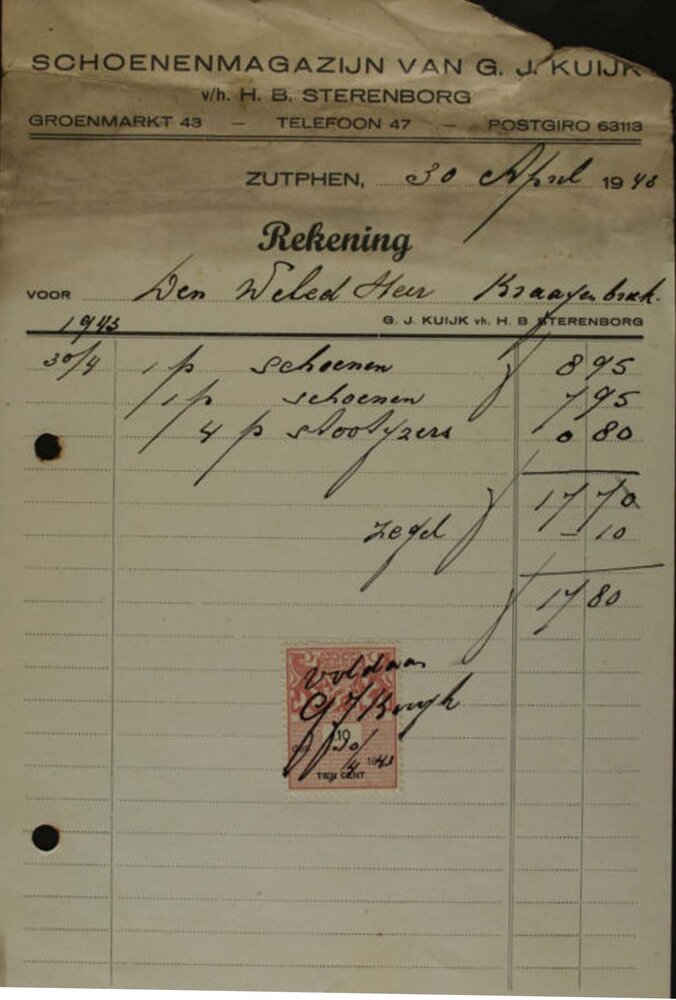 SCHOENENMAGAZIJN VAN G. J. KUIJK
v/h. H. B. STERENBORG
GROENMARKT 43 — TELEFOON 47 — POSTGIRO 63113
ZUTPHEN, 30 April 1943
Rekening
VOOR Den Weled Heer Kraayenbrink.
1943 G. J. KUIJK vh. H. B STERENBORG
30/4 1 p schoenen 8 95
1 p schoenen 7 95
4 p stootyzers 0 80
17 70
zegel – 10
17 80
voldaan
G J Kuyk
10
30/4 1943
TIEN CENT